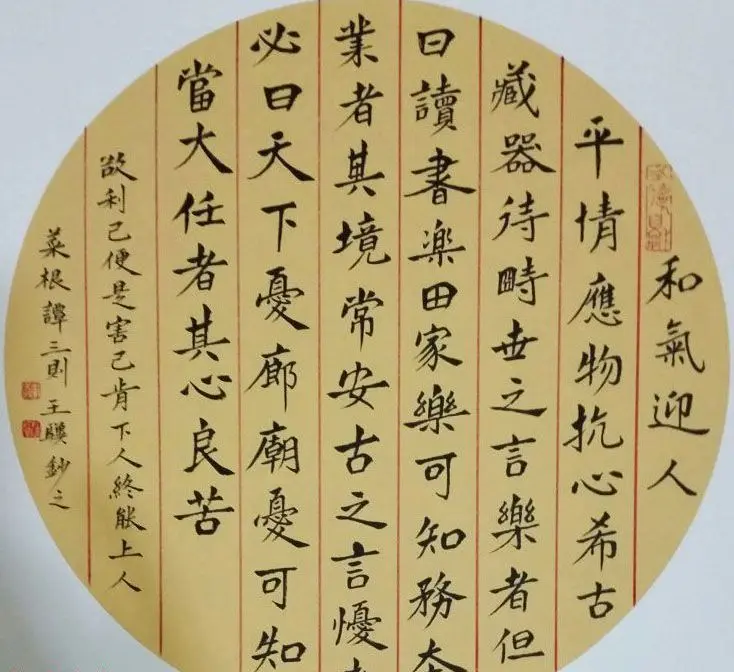 和氣迎人
平情應物抗心希古
藏器待時世之言樂者但
曰讀書楽田家樂可知務夲
業者其境常安古之言懮者
必曰天下憂廊廟憂可知
當大任者其心良苦
欲利己便是害己肯下人終能上人
菜根譚三則王鈔之